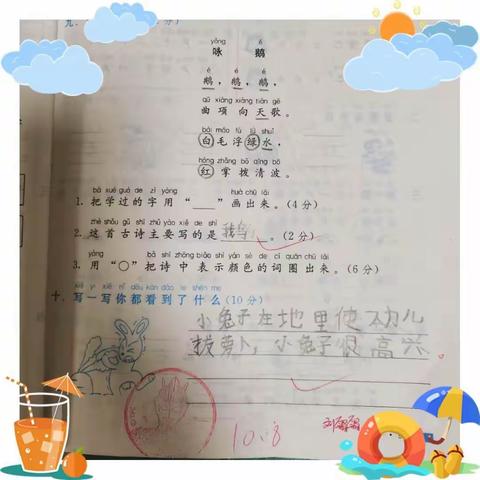 九、
分)
yǒng é
咏 鹅
é é é
鹅,鹅,鹅,
qū xiàng xiàng tiān gē
曲项向天歌。
bái máo fú lǜ shuǐ
白毛浮绿水,
hóng zhǎng bō qīng bō
红掌拨清波。
bǎ xué guò de zì yòng huà chū lái
1. 把学过的字用“___”画出来。(4分)
zhè shǒu gǔ shī zhǔ yào xiě de shì
2. 这首古诗主要写的是鹅。(2分)
yòng bǎ shī zhōng biǎo shì yán sè de cí quān chū lái
3. 用“○”把诗中表示颜色的词圈出来。(6分)
xiě yi xiě nǐ dōu kàn dào le shén me
十、写一写你都看到了什么(10分)
小兔子在地里
拔萝卜,小兔子很高兴